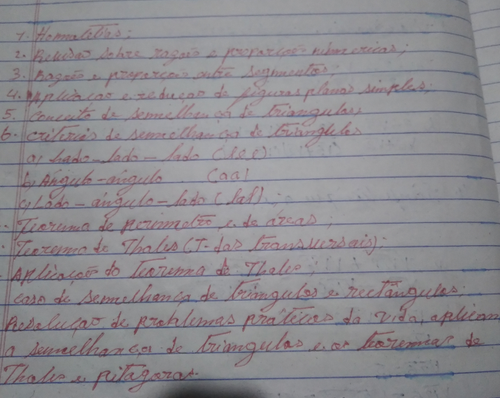 1. Homotetias;
2. Revisão sobre razão e proporção numericas;
3. Razão e proporção entre segmentos,
4. Aplicação e redução de figuras planas simples;
5. Conceito de semelhança de triangulos
6. Critérios de semelhança de triangulos
a) Lado-lado-lado (lll)
b) Ângulo-ângulo (aa)
c) Lado-ângulo-lado (lal)
Teorema de perimetro e de áreas;
Teorema de Thales (T. das transversais).
Aplicação do Teorema de Thales,
caso de semelhança de triângulos e rectângulos.
Resolução de problemas práticos da vida, aplican
a semelhança de triangulos e os teoremas de
Thales e pitágoras.